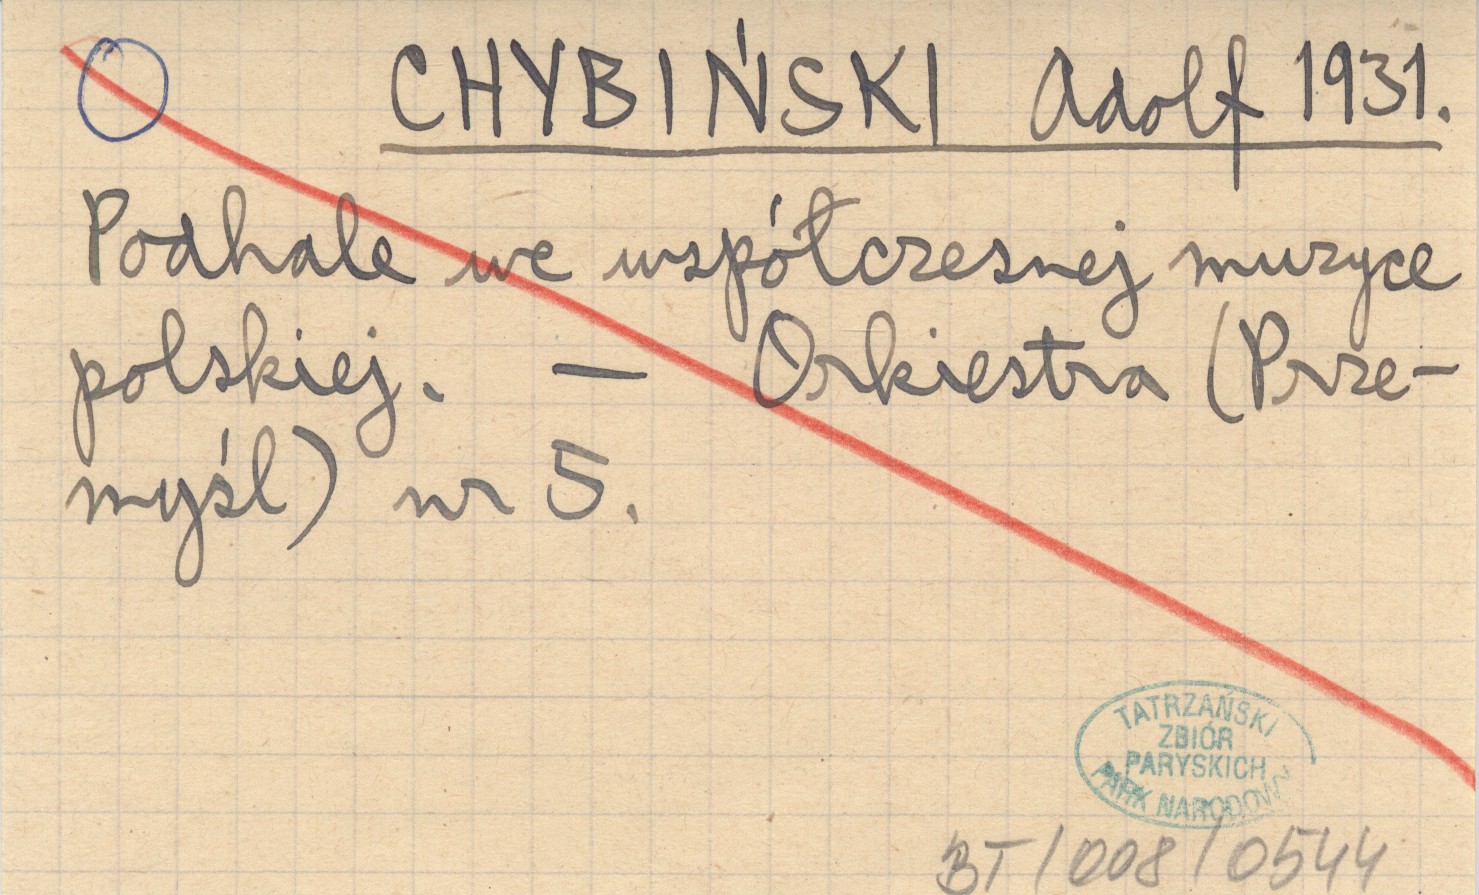 CHYBIŃSKI Adolf 1931.
Podhale we współczesnej muzyce
polskiej. — Orkiestra (Prze-
myśl) nr 5.
TATRZAŃSKI
ZBIÓR
PARYSKICH
PARK NARODOWY
BT/008/0544